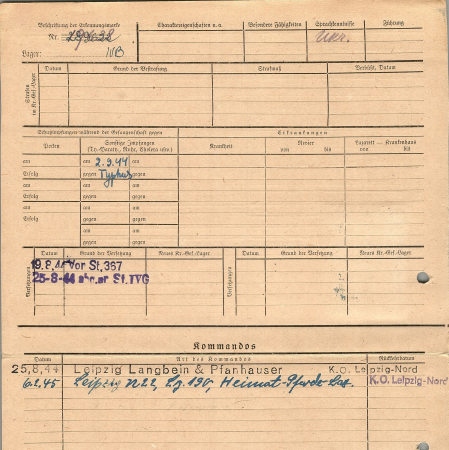 Beschriftung der Erkennungsmarke
Charaktereigenschaften u. a.
Besondere Fähigkeiten
Sprachkenntnisse
Führung
Nr.
Ukr.
Lager:
Strafen im Kr.-Gef.-Lager
Datum
Grund der Bestrafung
Strafmaß
Verbüßt, Datum
Schutzimpfungen während der Gefangenschaft gegen
Erkrankungen
Pocken
Sonstige Impfungen
(Ty.-Paraty., Ruhr, Cholera usw.)
Krankheit
Revier
von bis
Lazarett — Krankenhaus
von bis
am am 2.9.44 am
Erfolg gegen Typhus gegen
am am am
Erfolg gegen gegen
am am am
gegen gegen
am am am
gegen gegen
Versetzungen
Datum
Grund der Versetzung
Neues Kr.-Gef.-Lager
Versetzungen
Datum
Grund der Versetzung
Neues Kr.-Gef.-Lager
19.8.44 Vor St.367
25-8-44 St.IVG
Kommandos
Datum
Art des Kommandos
Rückkehrdatum
25.8.44 Leipzig Langbein & Pfanhauser K.O. Leipzig-Nord
6.2.45 Leipzig N22, 190, Heimat-Pferde-Laz. K.O. Leipzig-Nord